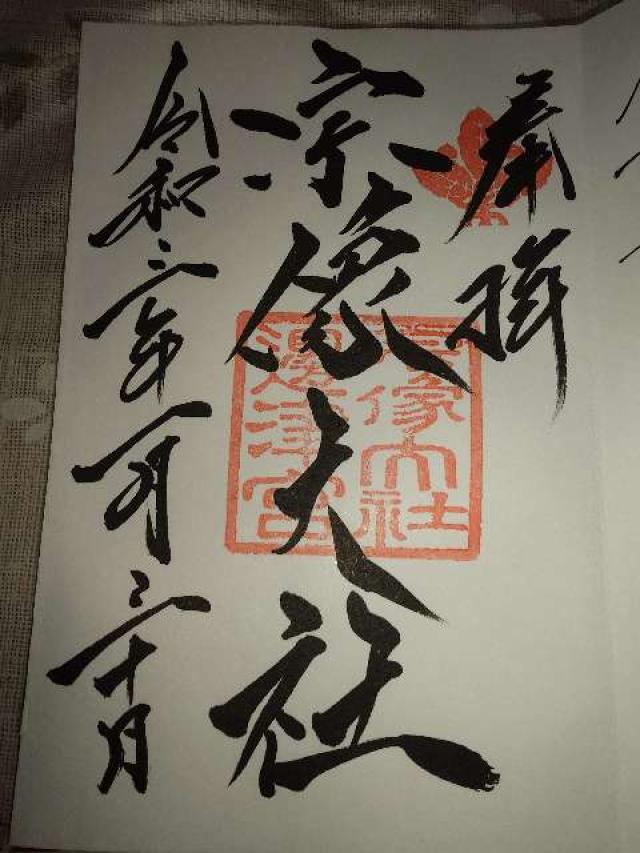 奉拝
宗像大社
宗像大社
邊津宮
令和三年一月三十日